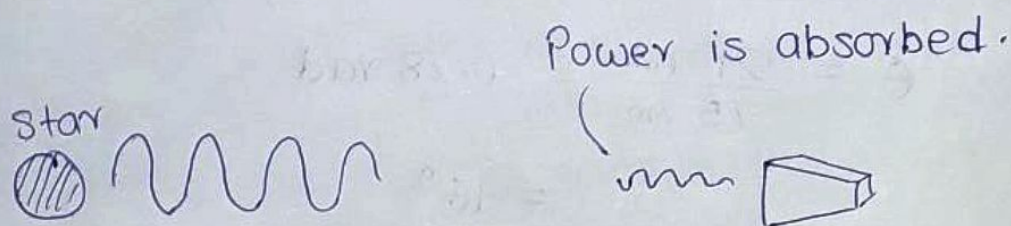 Power is absorbed.
star